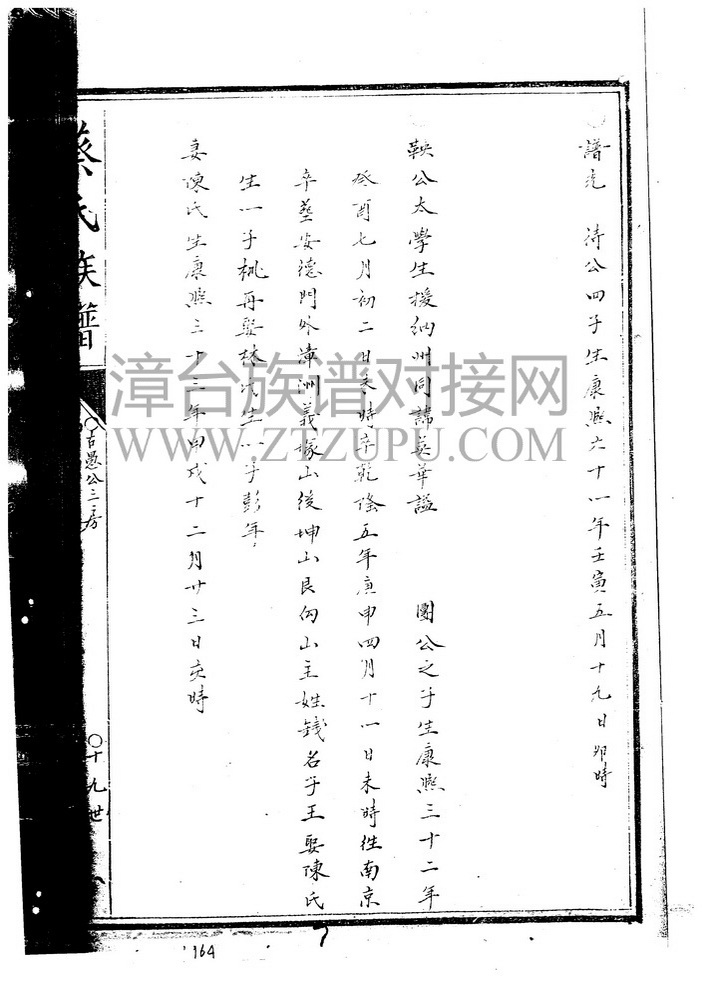 譜先 待公四子生康熙六十一年壬寅五月十九日卯時
鞅公太學生援納州同諱英華謚 團公之子生康熙三十二年
癸酉七月初二日亥時卒乾隆五年庚申四月十一日未時往南京
卒塟安德門外漳洲義塚山後坤山艮向山主姓錢名子王娶陳氏
生一子桃再娶林氏生一子彭年
妻陳氏生康熙三十三年甲戌十二月廿三日亥時
蔡氏族譜
古愚公三房
十九世
164
漳台族谱对接网
WWW.ZTZUPU.COM